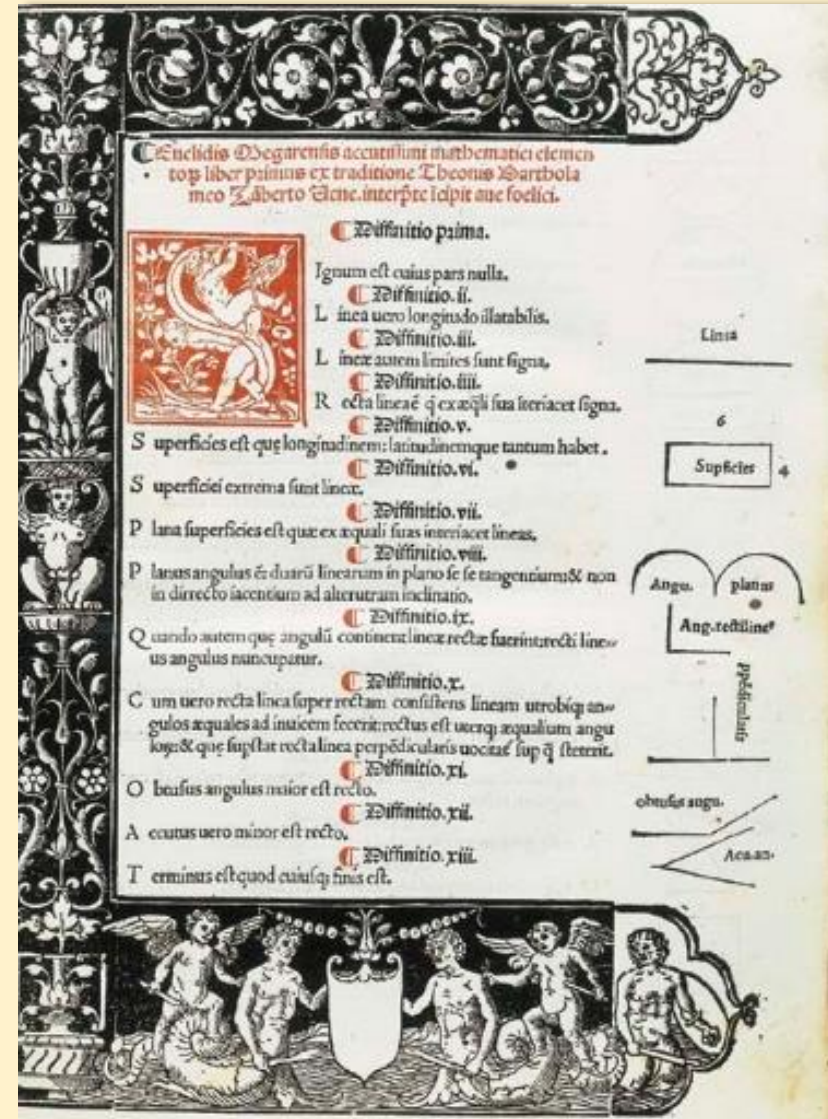 Euclidis Megarensis accutissimi mathematici elemen
toꝝ liber primus ex traditione Theonis Barthola
meo Zāberto Uene. interp̄te Icipit aue foelici.
Diffinitio prima.
SIgnum est cuius pars nulla.
Diffinitio. ii.
L inea uero longitudo illatabilis.
Diffinitio. iii.
L ineæ autem limites sunt signa.
Diffinitio. iiii.
R ecta lineaē q̄ ex æq̄li sua īteriacet signa.
Diffinitio. v.
S uperficies est quę longitudinem: latitudinemque tantum habet.
Diffinitio. vi.
S uperficiei extrema sunt lineæ.
Diffinitio. vii.
P lana superficies est quæ ex æquali suas interiacet lineas.
Diffinitio. viii.
P lanus angulus ē: duarū linearum in plano se se tangentium: & non
in dirrecto iacentium ad alterutram inclinatio.
Diffinitio. ix.
Q uando autem quę angulū continent lineæ rectæ fuerint: recti line
us angulus nuncupatur.
Diffinitio. x.
C um uero recta linea super rectam consistens lineam utrobiqȝ an
gulos æquales ad inuicem fecerit: rectus est uterqȝ æqualium angu
loꝝ: & quę supstat recta linea perpēdicularis uocitaē sup q̄ steterit.
Diffinitio. xi.
O btusus angulus maior est recto.
Diffinitio. xii.
A ccutus uero minor est recto.
Diffinitio. xiii.
T erminus est quod cuiusqȝ finis est.
Linea
6
Supficies 4
Angu. planus
Ang. rectilineꝰ
ppēdicularis
obtusus angu.
Acu. an.